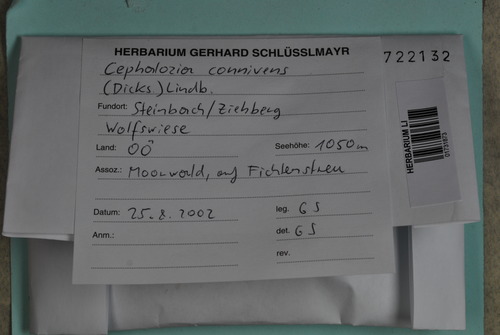 HERBARIUM GERHARD SCHLÜSSLMAYR
722132
Cephalozia connivens
(Dicks.) Lindb.
Fundort: Steinbach/Ziehberg
Wolfswiese
Land: OÖ Seehöhe: 1050m
Assoz.: Moorwald, auf Fichtenstreu
Datum: 25.8.2002 leg. GS
Anm.: det. GS
rev.
HERBARIUM LI